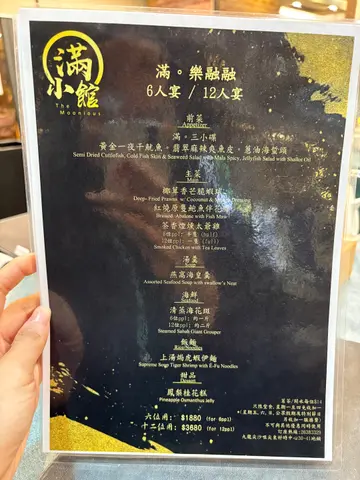 滿
小館
The
Moonious
滿。樂融融
6人宴 / 12人宴
前菜
Appetizer
滿。三小碟
黃金一夜干魷魚。翡翠麻辣爽魚皮。蔥油海蜇頭
Semi Dried Cuttlefish, Cold Fish Skin & Seaweed Salad with Mala Spicy, Jellyfish Salad with Shallot Oil
主菜
Main
椰茸香芒脆蝦球
Deep- Fried Prawns w/ Cocounut & Dressing
紅燒原隻鮑魚伴花
Braised Abalone with Fish Maw
茶香煙燻太爺雞
6位ppl: 半隻 (half)
12位ppl: 一隻 (full)
Smoked Chicken with Tea Leaves
湯羹
Soup
燕窩海皇羹
Assorted Seafood Soup with swallow's Nest
海鮮
Seafood
清蒸海花䱽
6位ppl: 肉一片
12位ppl: 肉一片
Steamed Sabah Giant Grouper
飯麵
Rice/Noodles
上湯焗虎蝦伊麵
Supreme Soup Tiger Shrimp with E-Fu Noodles
甜品
Dessert
鳳梨桂花糕
Pineapple Osmanthus Jelly
六位用: $1880 (for 6ppl)
十二位用: $3680 (for 12ppl)
茗茶/開水每位$14
只限堂食,星期一至四免收加一
不可與其他優惠同時使用
訂座熱線:26383320